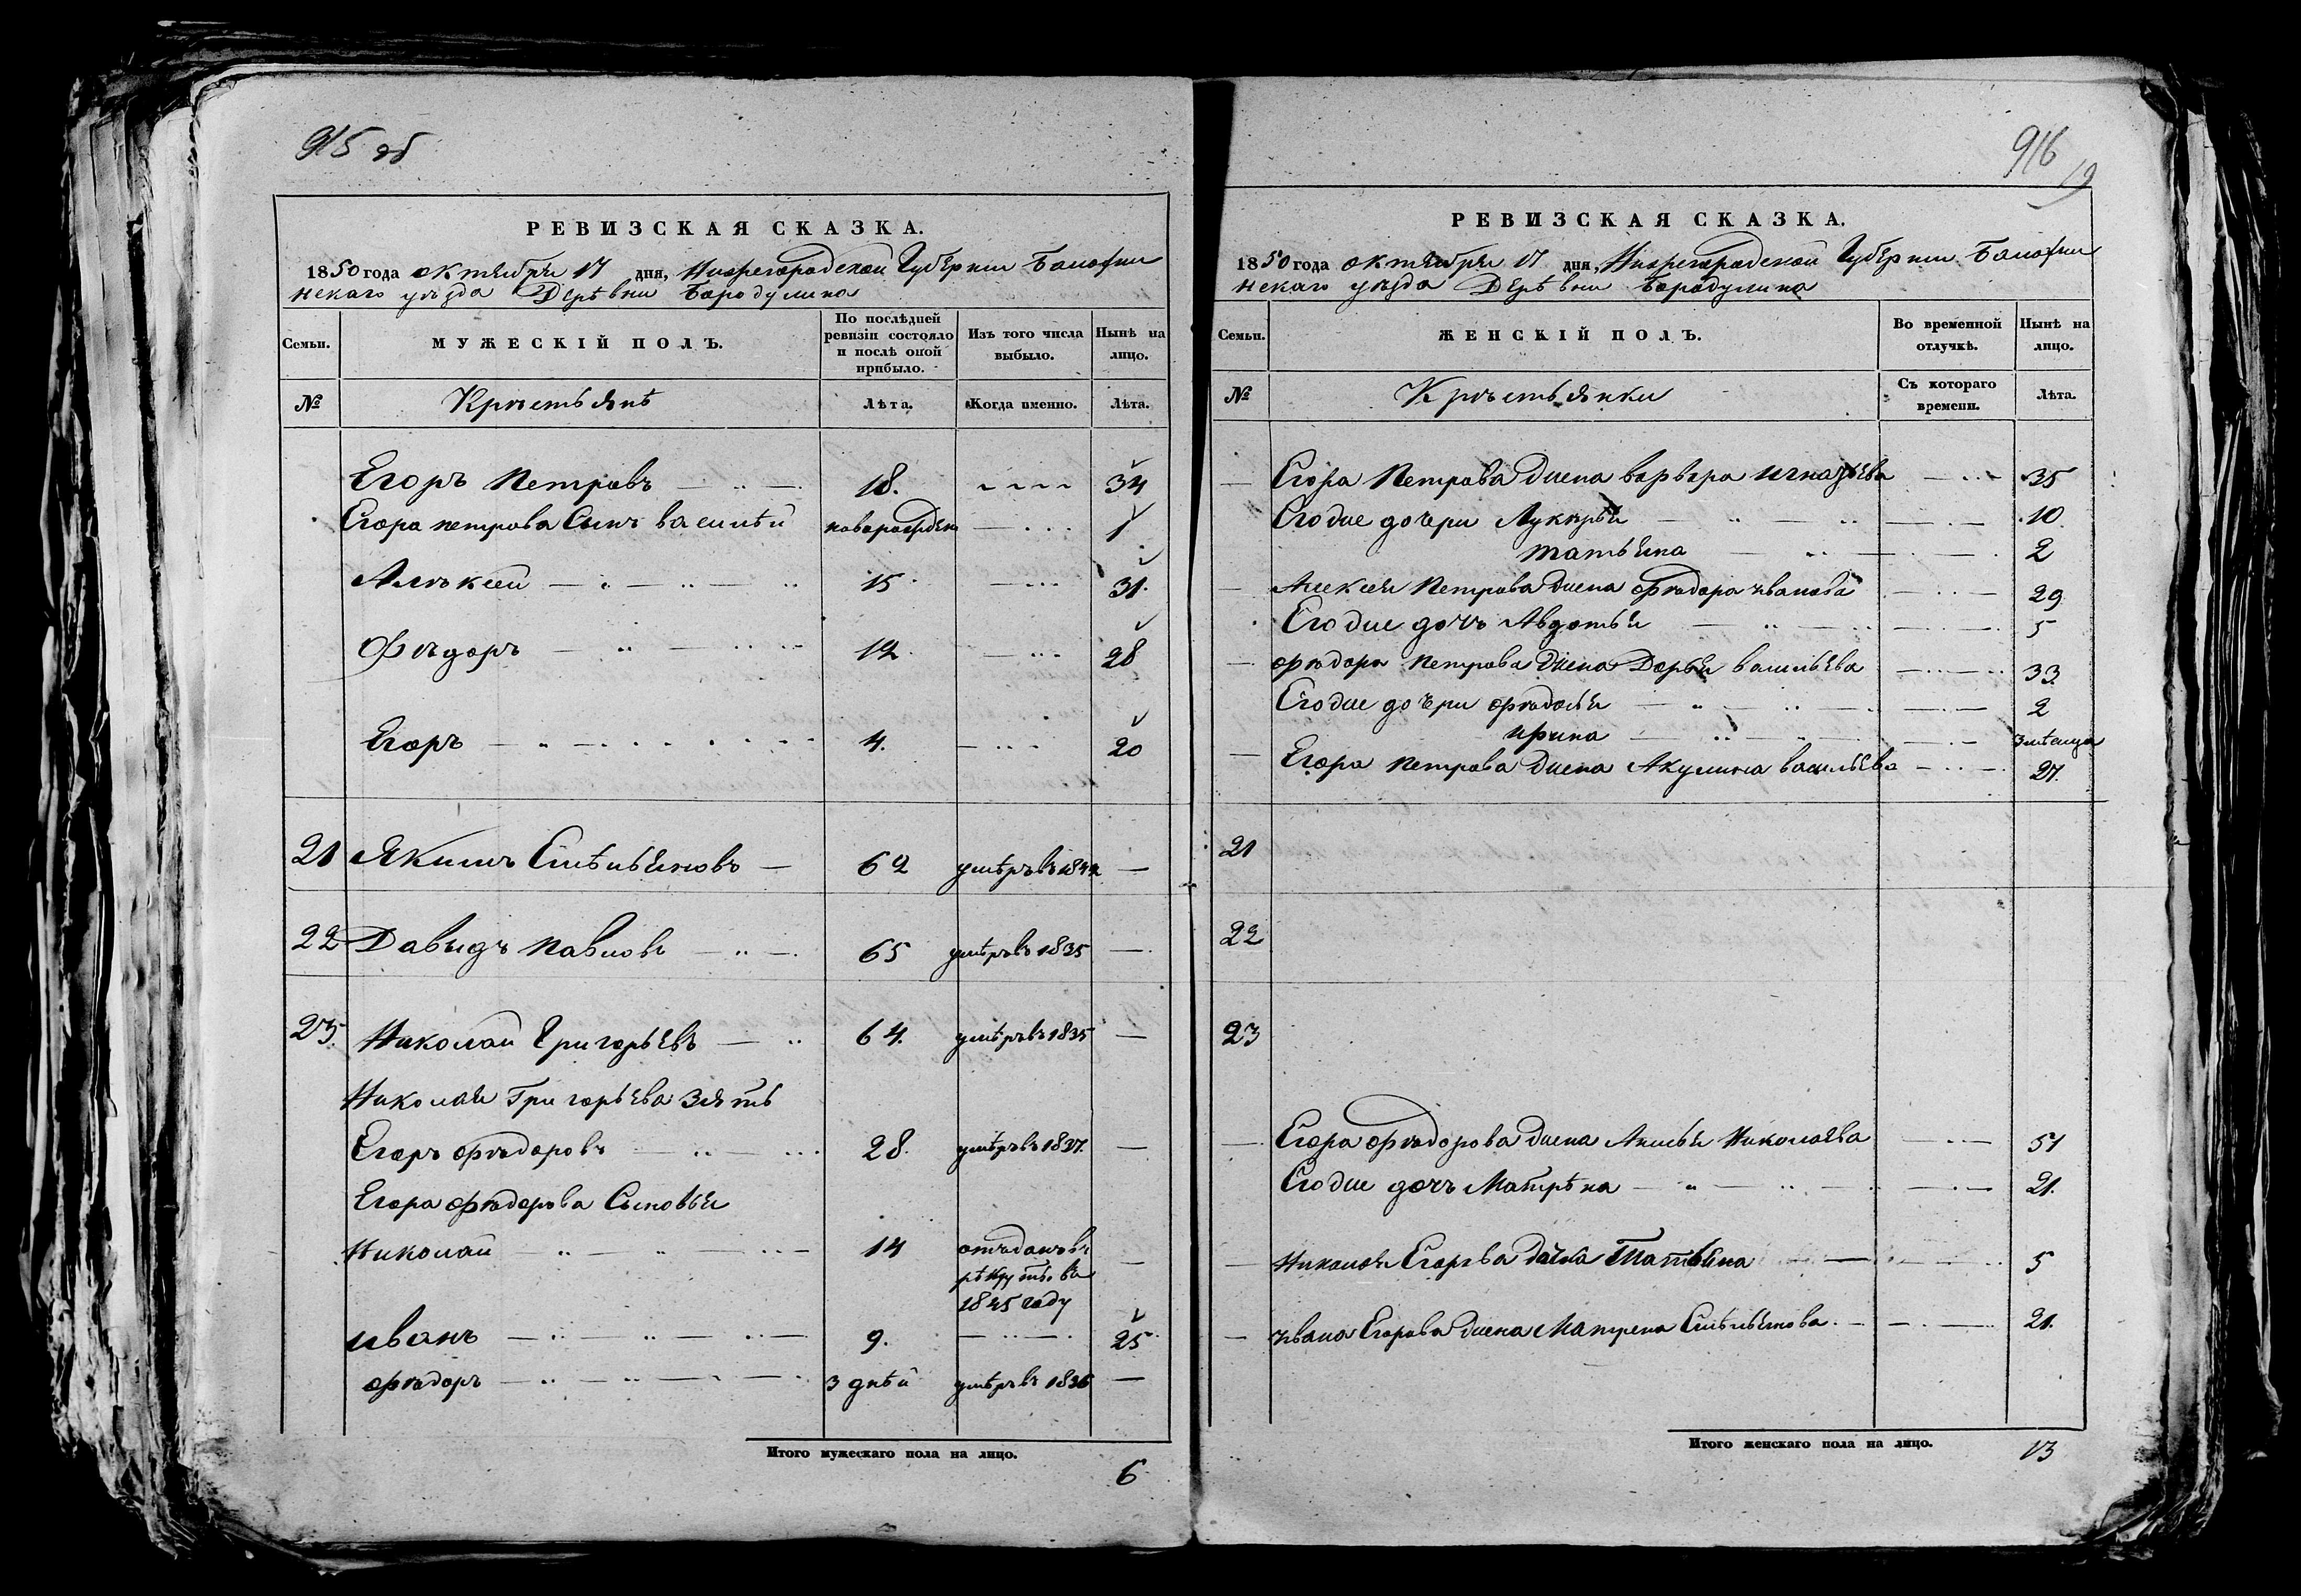 915 об
РЕВИЗСКАЯ СКАЗКА.
1850 года октября 17 дня, Нижегородской Губернии Балахни
нскаго уѣзда Деревни Бородулина
Семьи.
МУЖЕСКІЙ ПОЛЪ.
По послѣдней ревизіи состояло и послѣ оной прибыло.
Изъ того числа выбыло.
Нынѣ на лицо.
№
Крѣстьянѣ
Лѣта.
Когда именно.
Лѣта.
Егоръ Петровъ 18. 34
Егора петрова Сынъ василѣй новорожден 1
Алѣксѣй 15 31.
Фѣдоръ 12 28
Егоръ 4. 20
21 Якимъ Емѣльяновъ 62 умѣръ въ 1842
22 Давыдъ Павловъ 65 умѣръ въ 1835
23. Николай Григорьевъ 64. умѣръ въ 1835
Николая Григорьева Зять
Егоръ фѣдоровъ 28. умѣръ въ 1837.
Егора фѣдорова Сыновья
Николай 14 отъданъ въ
рѣкруты въ
1845 году
иванъ 9. 25
фѣдоръ 3 днѣй умѣръ въ 1836
Итого мужескаго пола на лицо.
6
916
19
РЕВИЗСКАЯ СКАЗКА.
1850 года октября 17 дня, Нижегородской Губернии Балахни
нскаго уѣзда Деревни Бородулина
Семьи.
ЖЕНСКІЙ ПОЛЪ.
Во временной отлучкѣ.
Нынѣ на лицо.
№
Крѣстьянки
Съ котораго времени.
Лѣта.
Егора Петрова Жена варвара игнатьева 35
Его же дочери Лукерья 10
татьяна 2
Алексея Петрова жена фѣдора иванова 29
Его же дочъ Авдотья 5
фѣдора Петрова Жена Дарья васильева 33
Его же дочери фѣдосья 2
ирина 3 мѣсяца
Егора Петрова жена Акулина васильева 27.
21
22
23
Егора фѣдорова жена Анисья Николаева 51
Его же дочъ Матрѣна 21.
Николая Егорова дочка Татьяна 5
ивана Егорова жена Матрена Емѣльянова 21.
Итого женскаго пола на лицо.
13